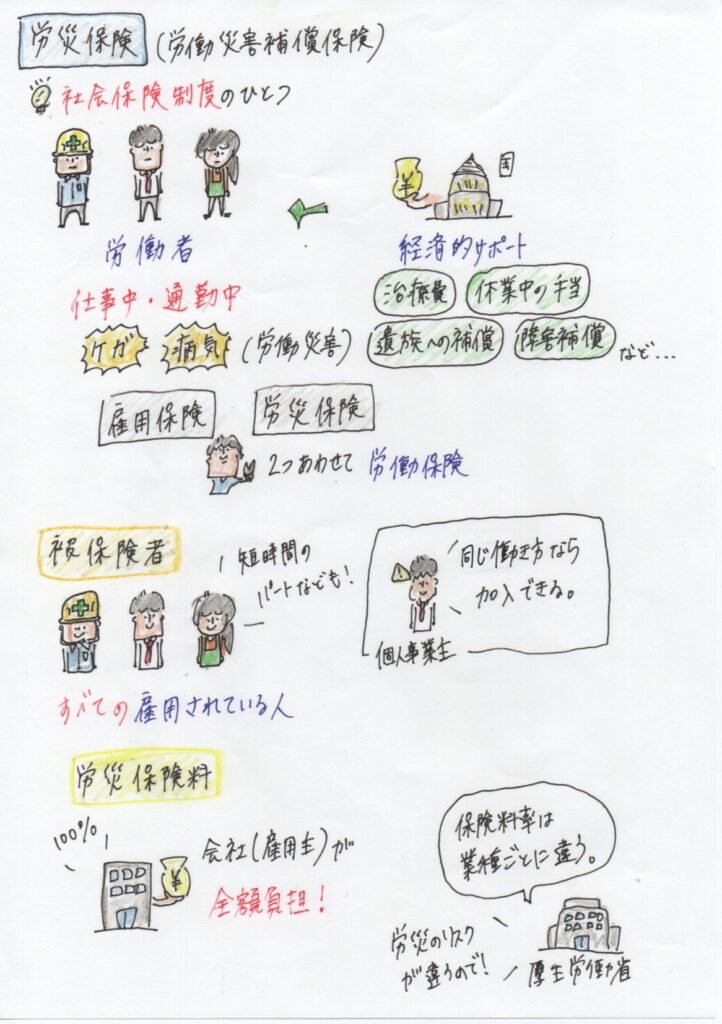 労災保険 (労働災害補償保険)
社会保険制度のひとつ
¥
国
労働者
経済的サポート
仕事中・通勤中
治療費
休業中の手当
ケガ
病気
(労働災害)
遺族への補償
障害補償
など...
雇用保険
労災保険
2つあわせて 労働保険
被保険者
短時間の
パートなども!
同じ働き方なら
加入できる。
個人事業主
すべての雇用されている人
労災保険料
100%
¥
会社(雇用主)が
全額負担!
保険料率は
業種ごとに違う。
労災のリスク
が違うので!
厚生労働省